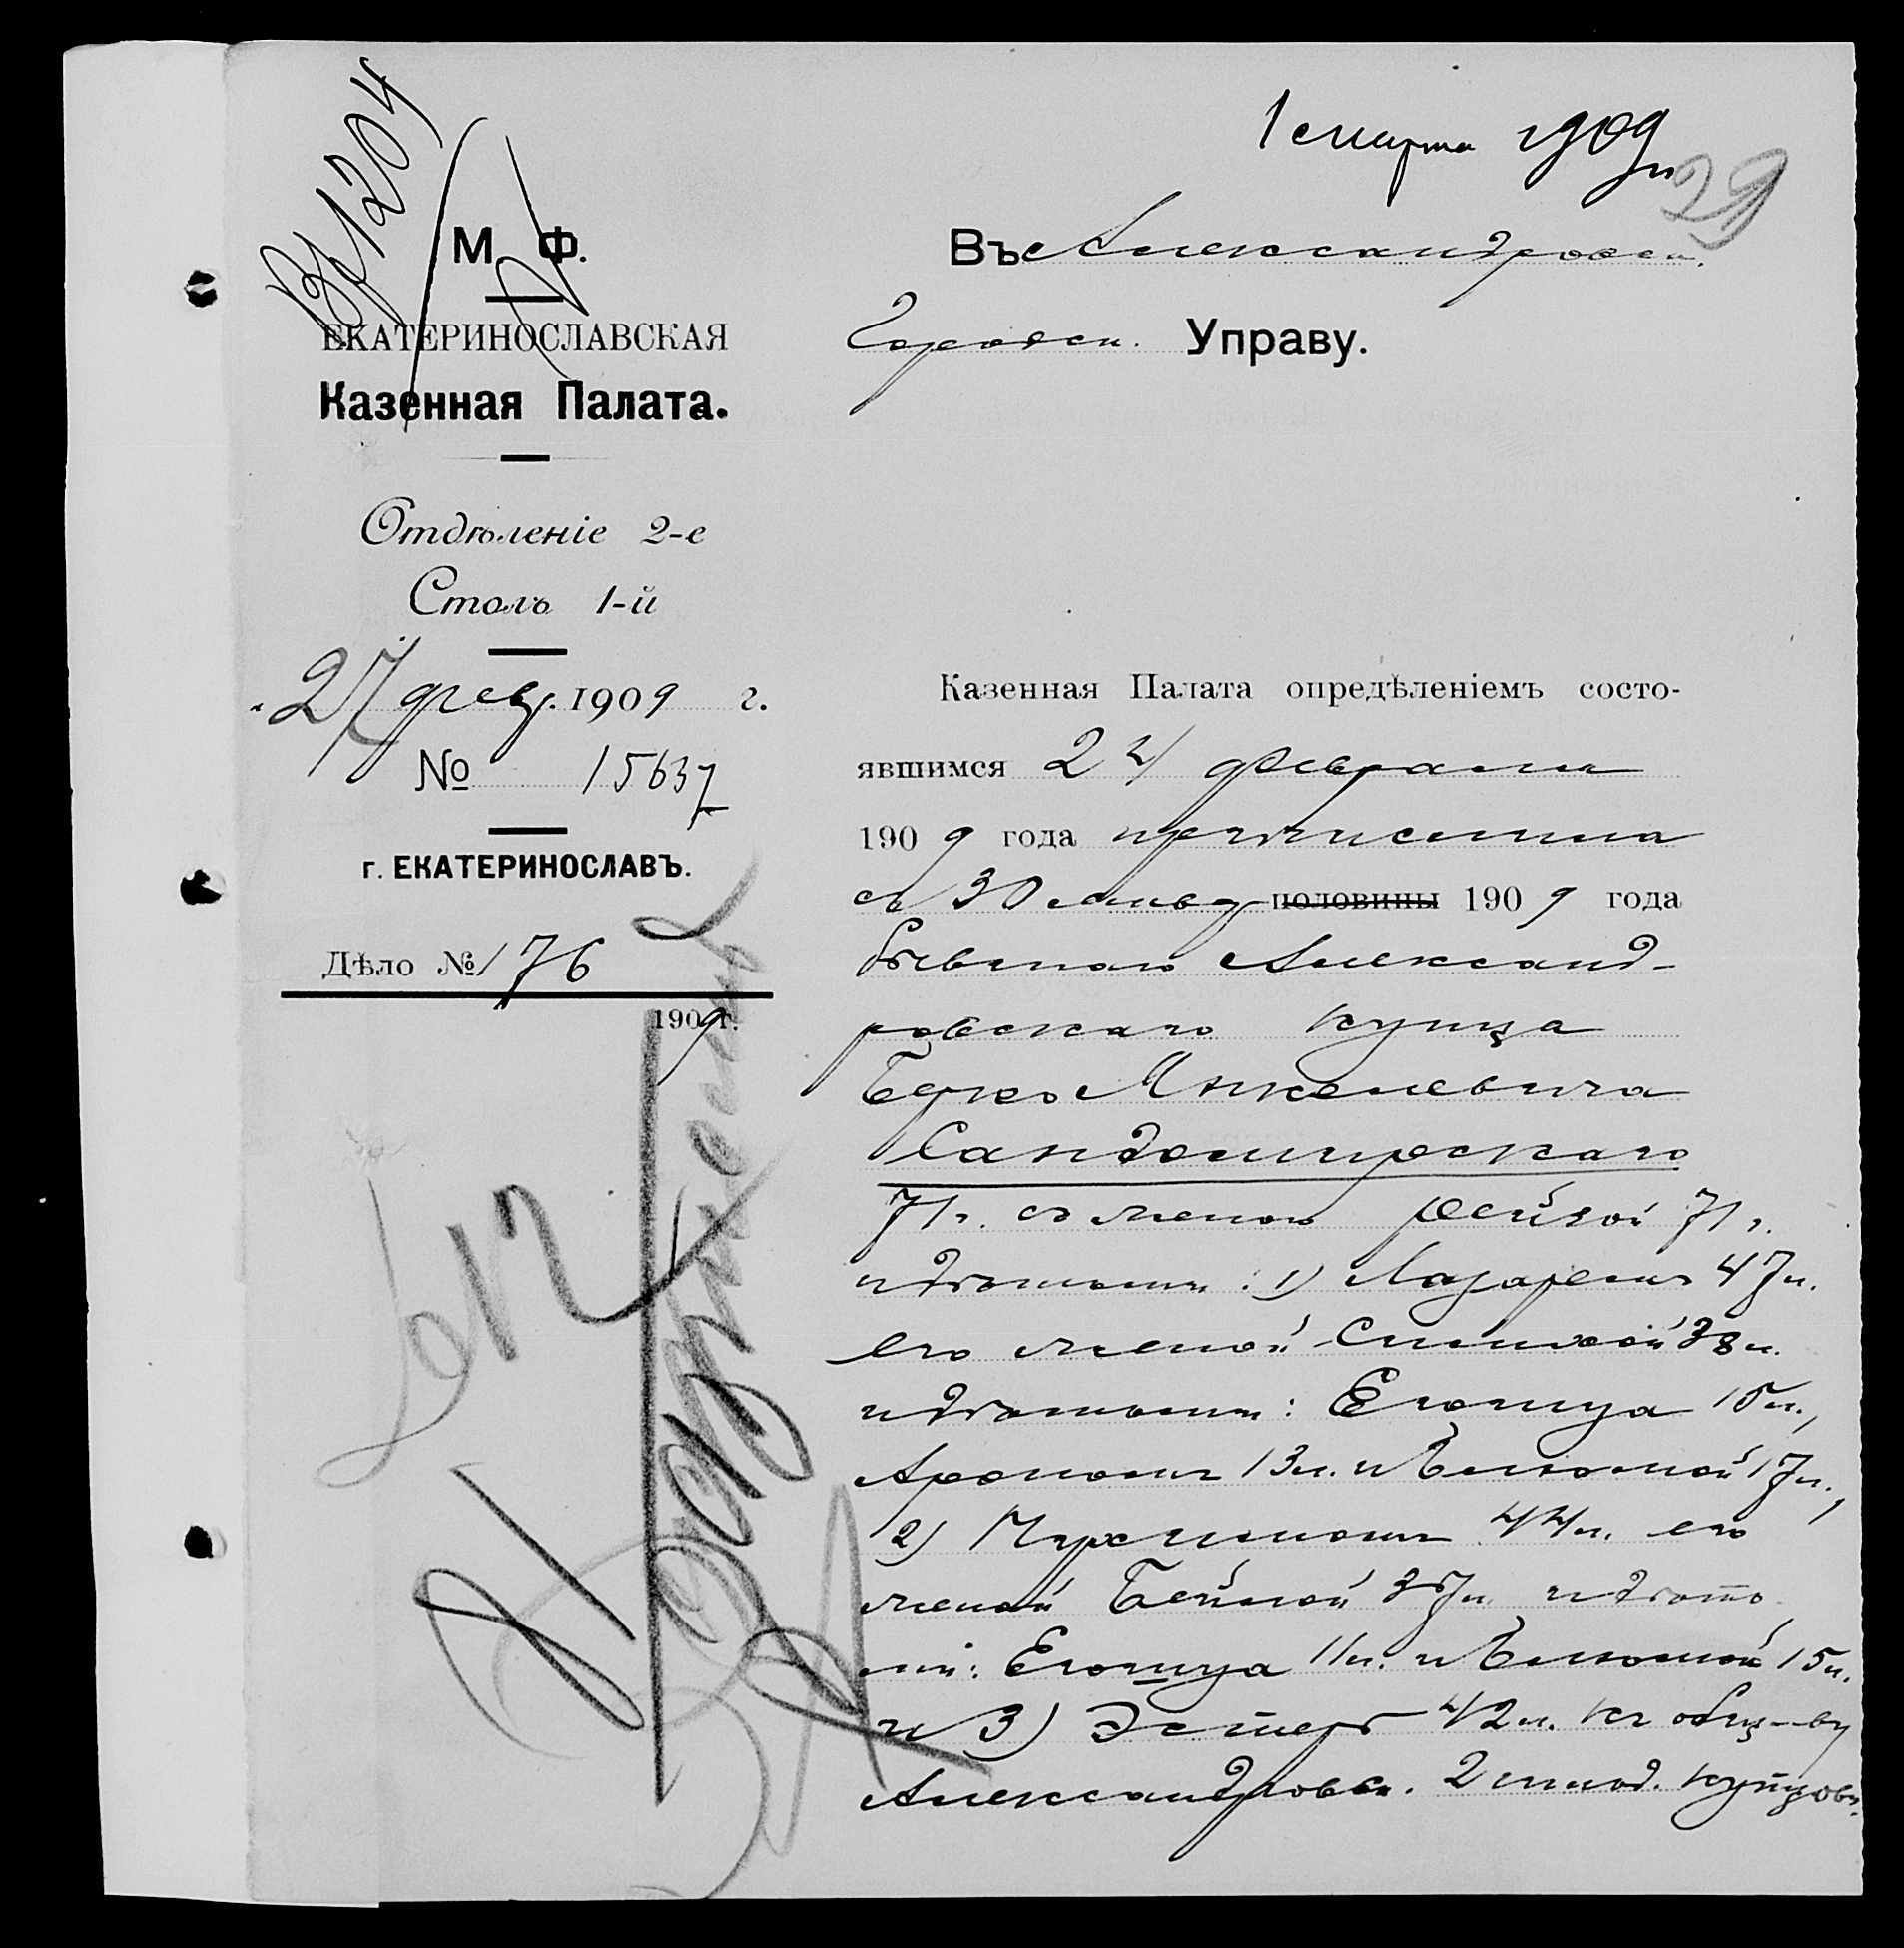 Вх 1204
1 марта 1909 г.
29
М. Ф.
ЕКАТЕРИНОСЛАВСКАЯ
Казенная Палата.
Отдѣленіе 2-е
Столъ 1-й
27 февр. 1909 г.
№ 15637
г. ЕКАТЕРИНОСЛАВЪ.
Дѣло № 176
1909 г.
Въ Александровск.
Городск. Управу.
Казенная Палата опредѣленіемъ состо-
явшимся 24 февраля
1909 года причислила
съ 30 января половины 1909 года
бывшаго Александ-
ровскаго купца
Берко Минкелевича
Сандомирскаго
71 г. съ женою Рейзой 71 г.
и дѣтьми: 1) Лазаремъ 47 л.
его женой 38 л.
и дѣтьми: Егошуа 15 л.,
Арономъ 13 л. и Блюмой 17 л.,
2) Нухимомъ 44 л. его
женой Бейлой 37 л. и дѣть-
ми: Егошуа 11 л. и Блюмой 15 л.
и 3) Эстеръ 42 л. къ общ-ву
Александровск. 2 гильд. купцовъ.